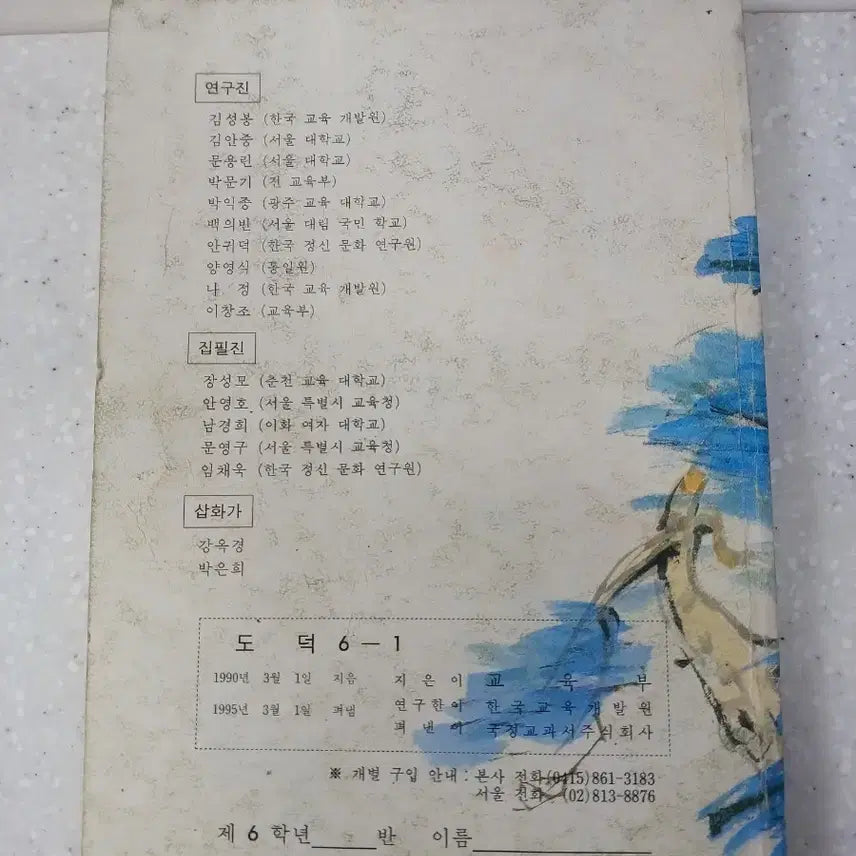 연구진
김성봉 (한국 교육 개발원)
김안중 (서울 대학교)
문용린 (서울 대학교)
박문기 (전 교육부)
박익중 (광주 교육 대학교)
백의빈 (서울 대림 국민 학교)
안귀덕 (한국 정신 문화 연구원)
양영식 (통일원)
나 정 (한국 교육 개발원)
이창조 (교육부)
집필진
장성모 (춘천 교육 대학교)
안영호 (서울 특별시 교육청)
남경희 (이화 여자 대학교)
문영구 (서울 특별시 교육청)
임채욱 (한국 정신 문화 연구원)
삽화가
강옥경
박은희
도 덕 6-1
1990년 3월 1일 지음 지은이 교 육 부
1995년 3월 1일 펴냄 연구한이 한국교육개발원
펴낸이 국정교과서주식회사
※ 개별 구입 안내 : 본사 전화 (0415)861-3183
서울 전화 (02)813-8876
제 6 학년 반 이름